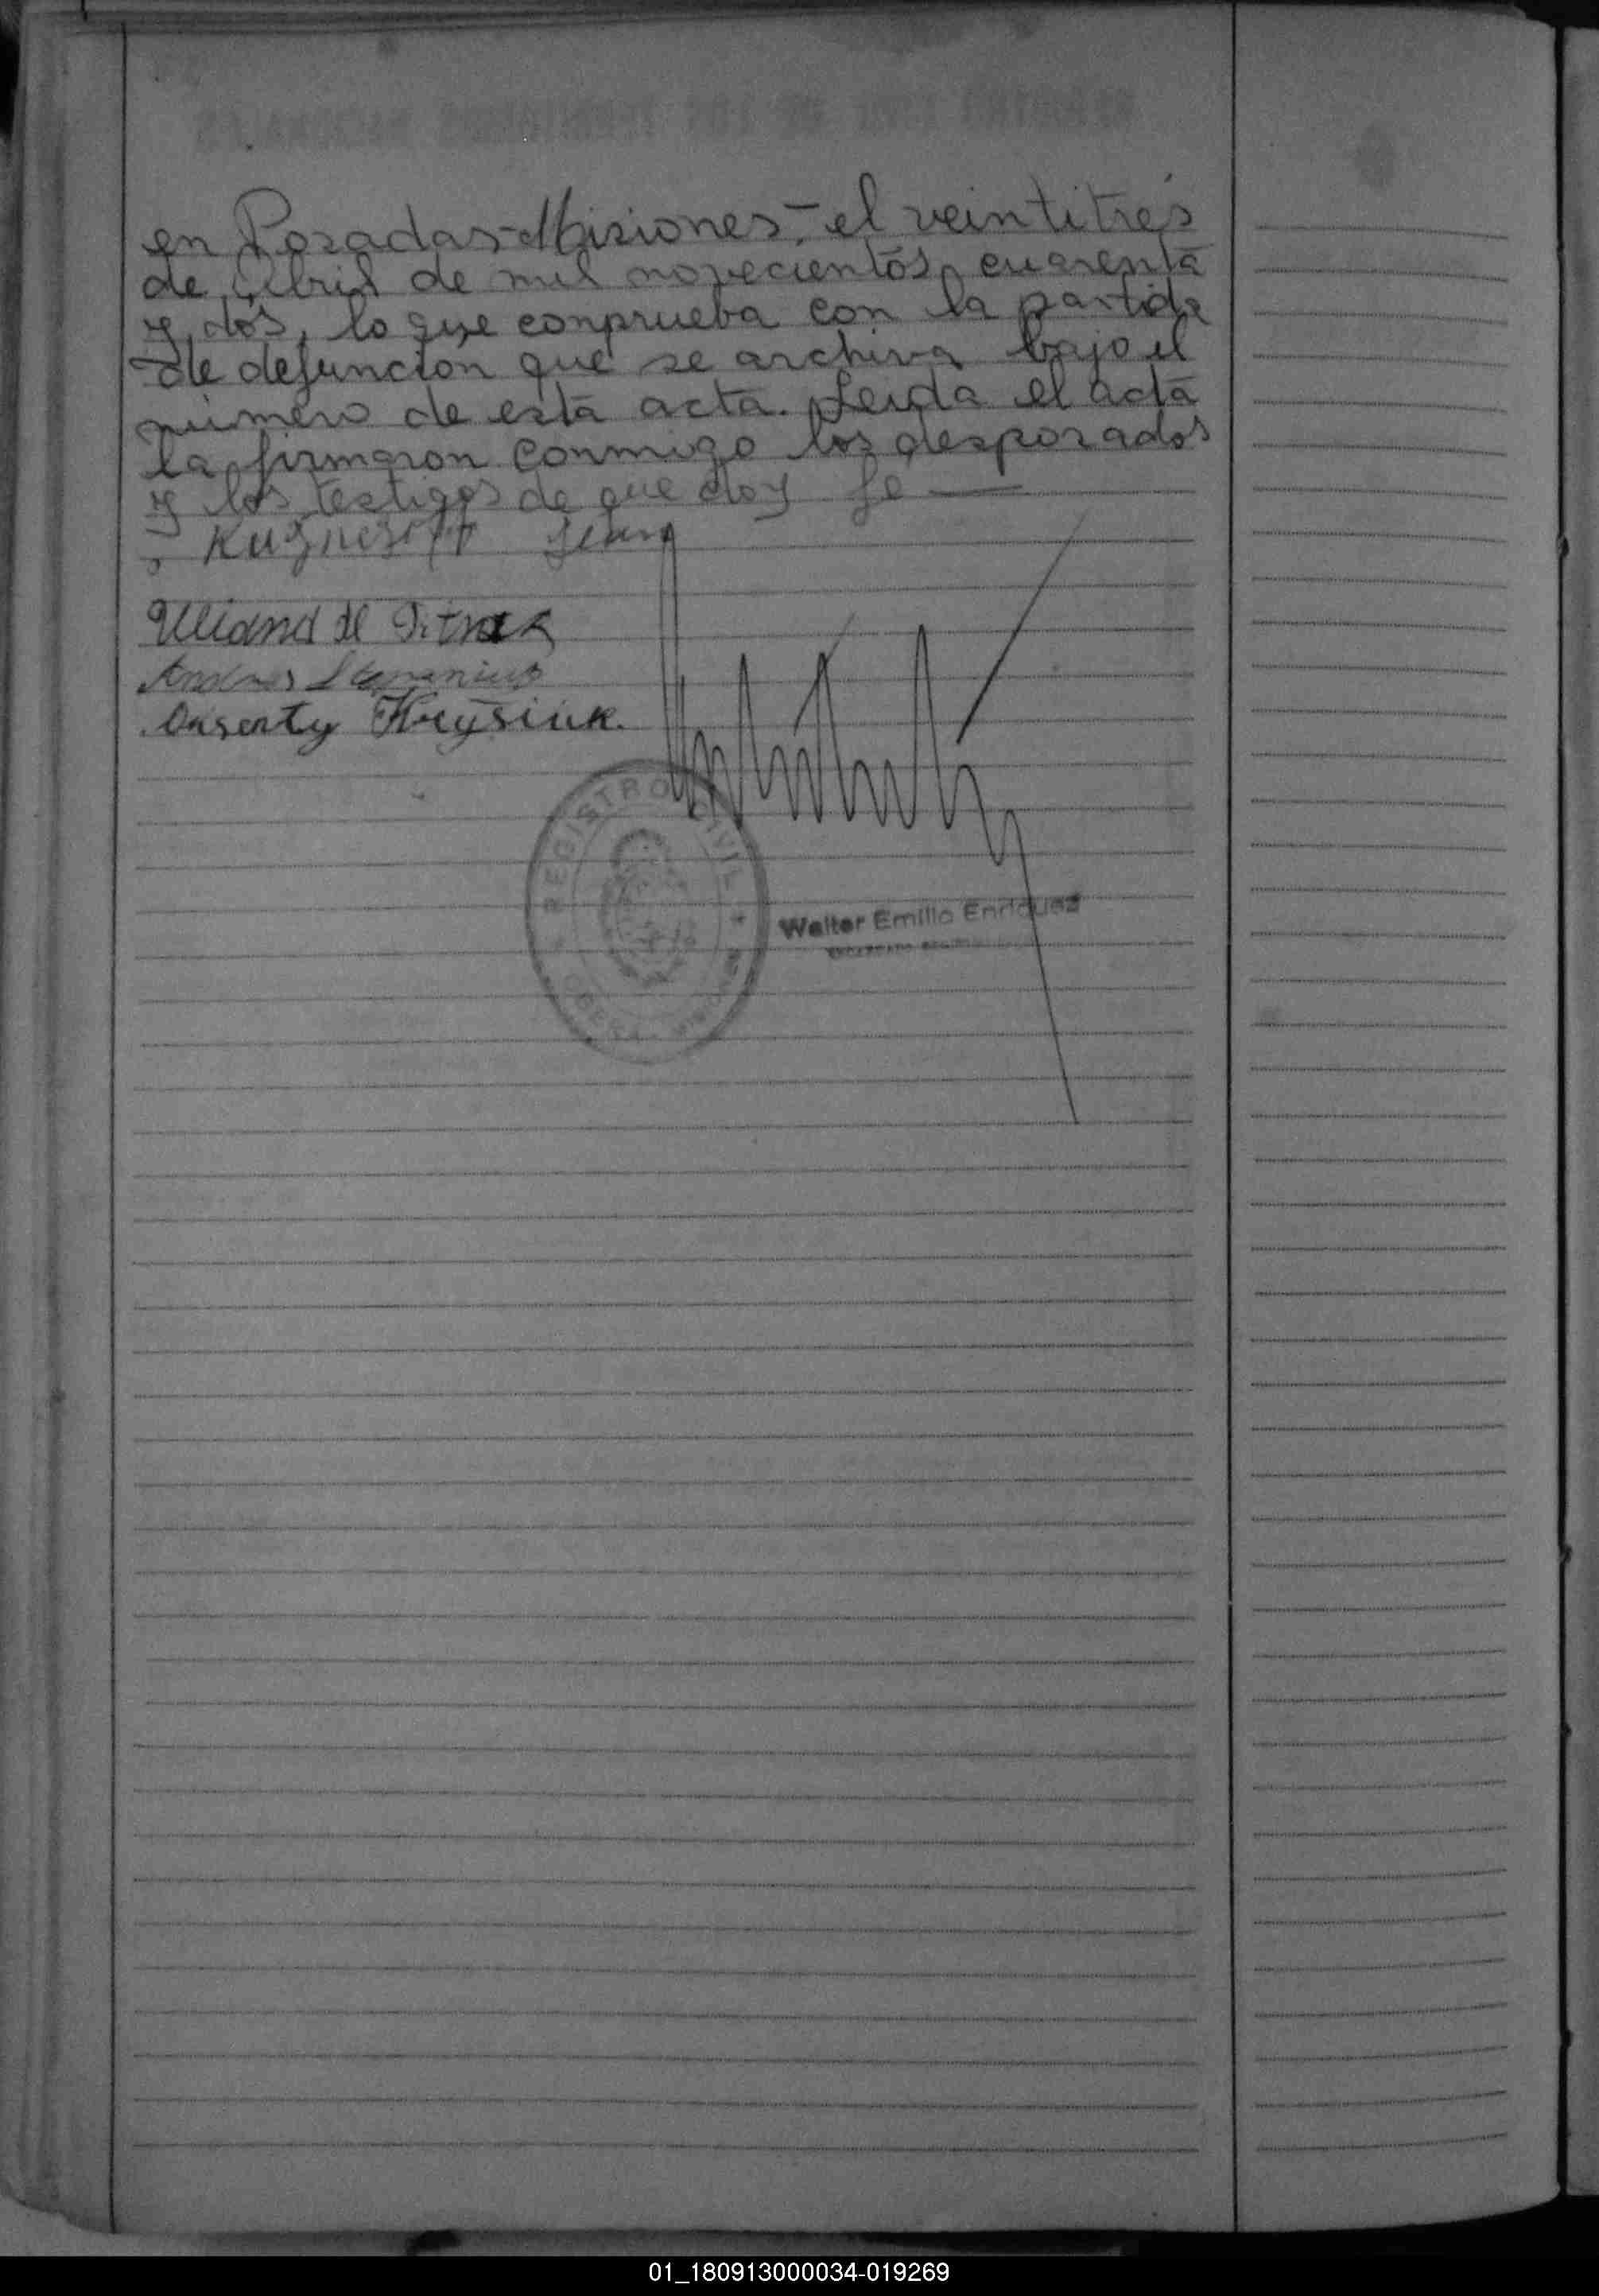 en Posadas-Misiones,- el veintitrés
de Abril de mil novecientos cuarenta
y dos, lo que conprueba con la partida
de defunción que se archiva bajo el
número de esta acta. Leida el acta
la firmaron conmigo los desposados
y los testigos de que doy fé —
Uliana de
Andres
Krysiuk.
REGISTRO CIVIL
OBERA - MISIONES
Walter Emilio Enriquez
ENCARGADO
01_180913000034-019269